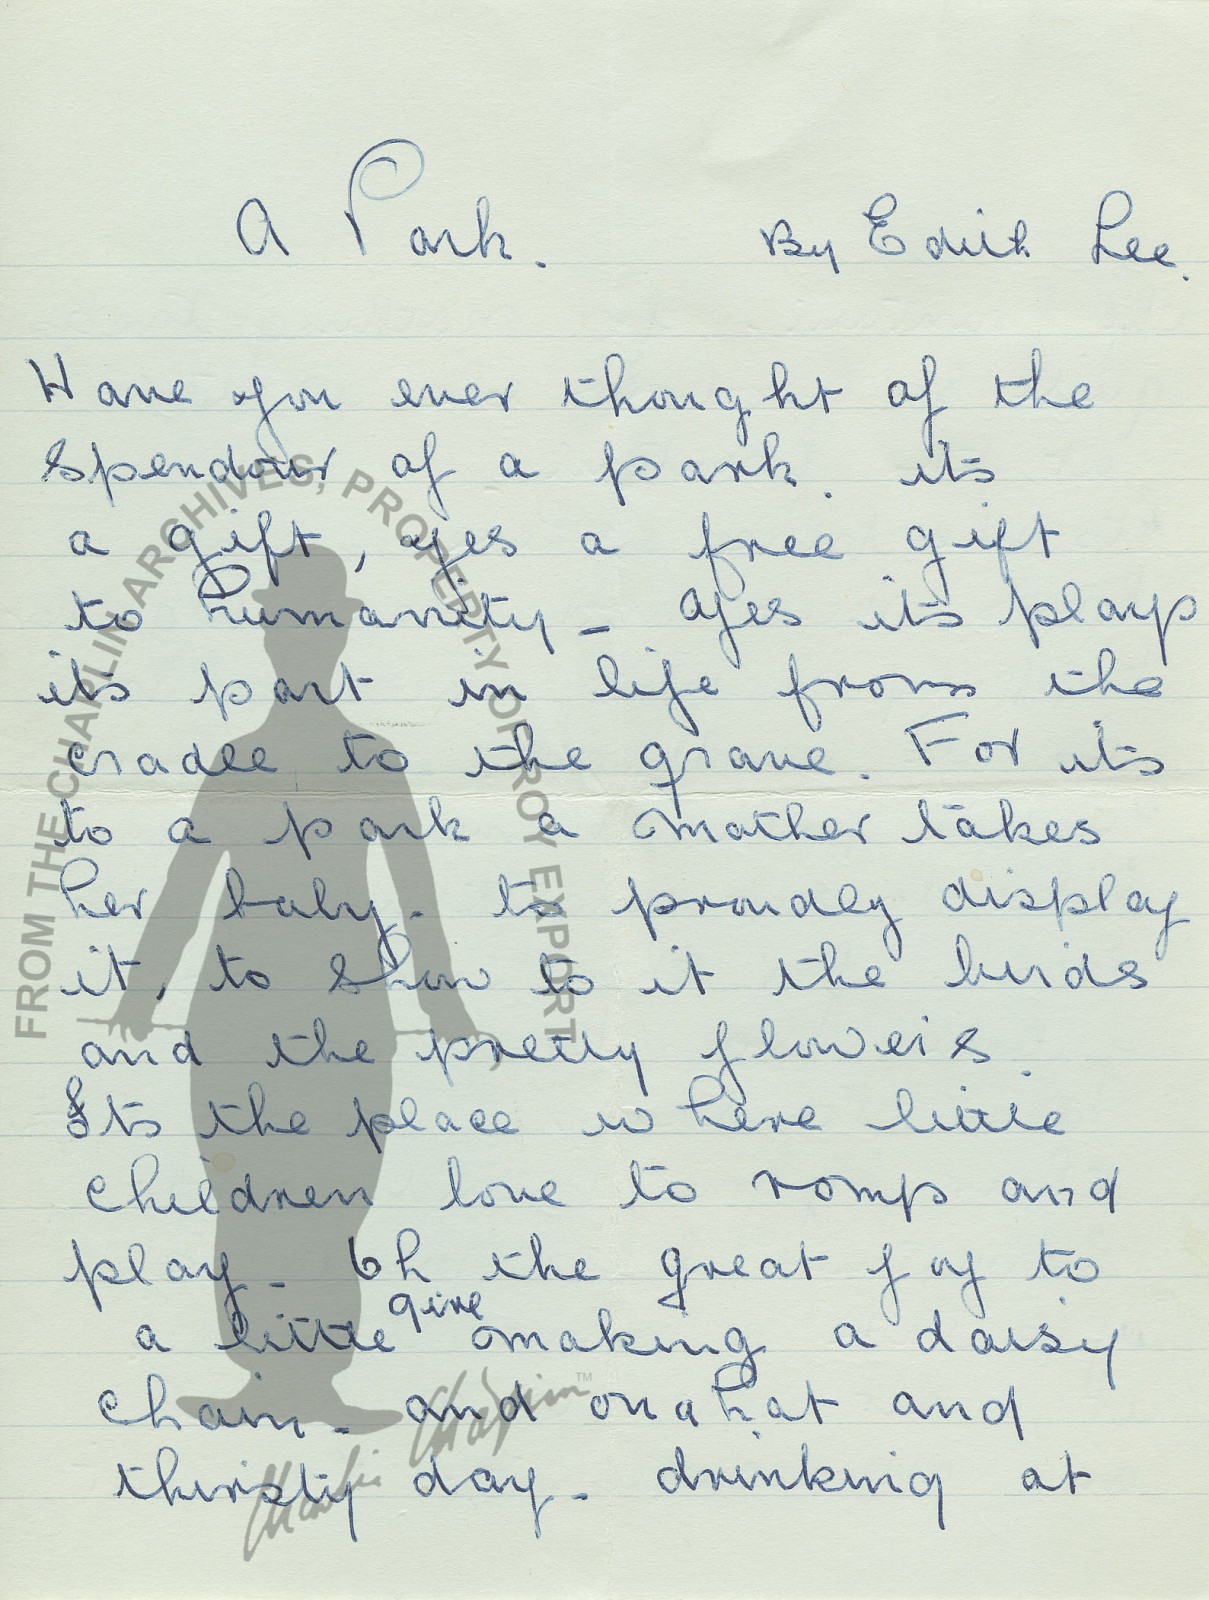 A Park. By Edith Lee.
Have you ever thought of the
spendour of a park. its
a gift, yes a free gift
to humanity - yes its plays
its part in life from the
cradle to the grave. For its
to a park a mother takes
her baby. to proudly display
it, to show to it the birds
and the pretty flowers.
Its the place where little
children love to romp and
play - Oh the great joy to
give
a little making a daisy
chain - and on a hot and
thirsty day - drinking at
FROM THE CHAPLIN ARCHIVES, PROPERTY OF ROY EXPORT
Charlie Chaplin TM